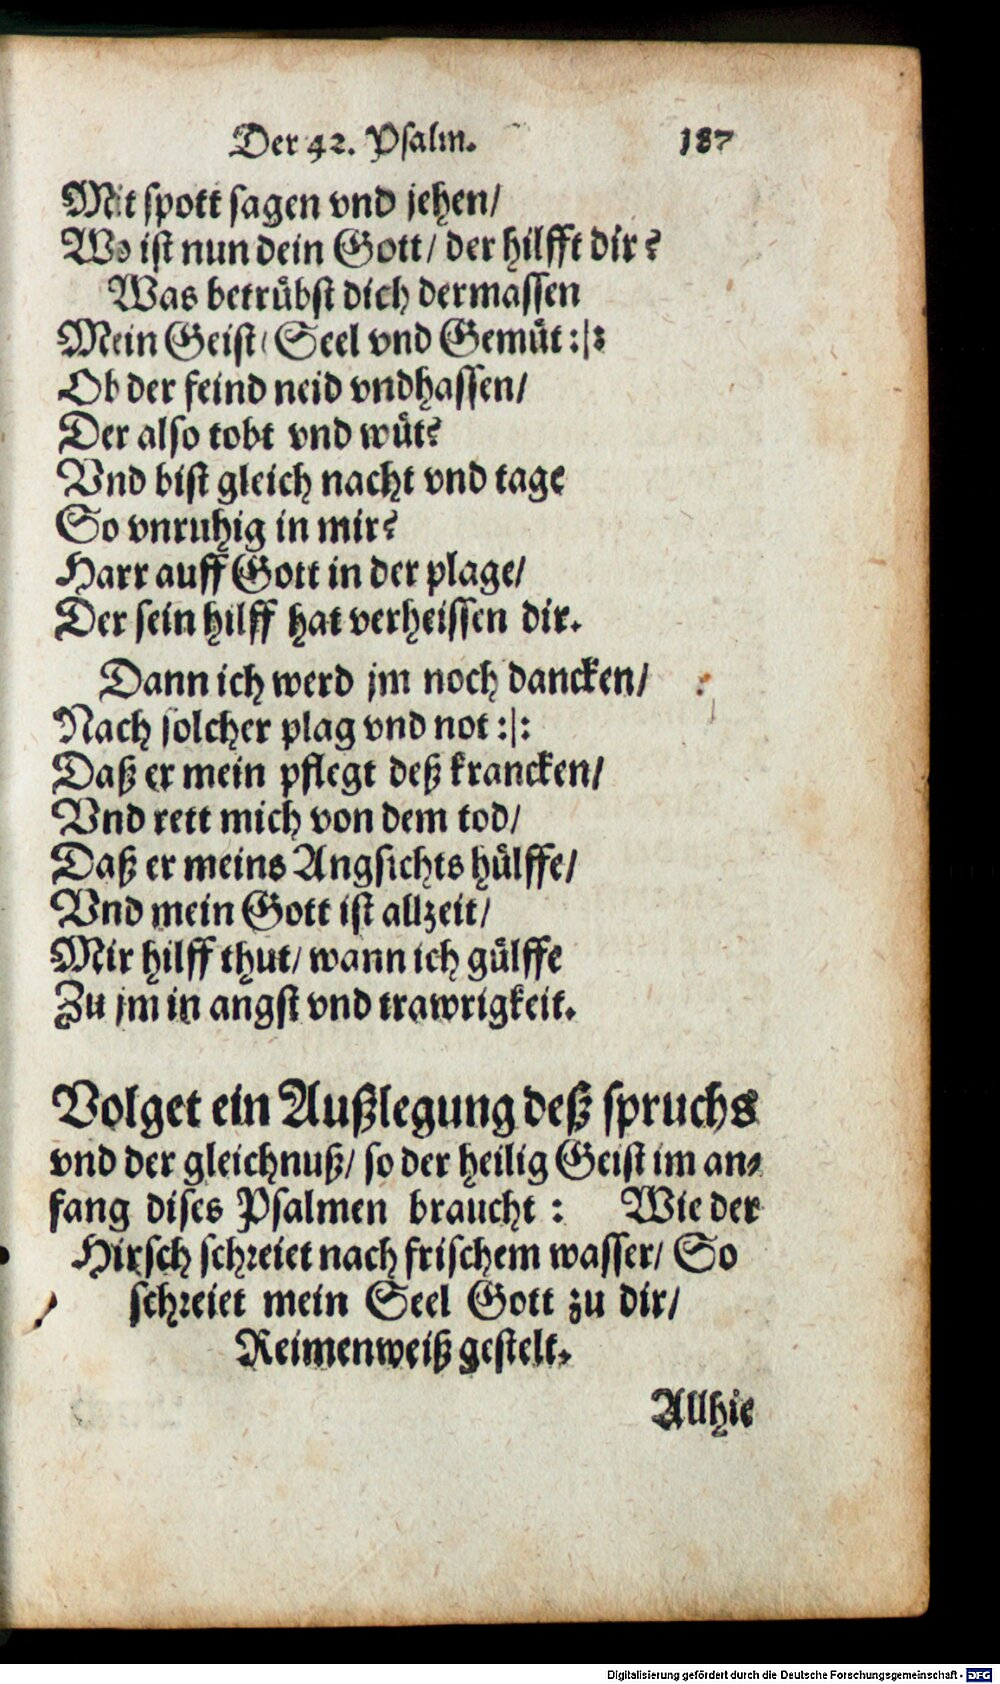 Der 42. Psalm. 187
Mit spott sagen vnd jehen/
Wo ist nun dein Gott/ der hilfft dir?
Was betrübst dich dermassen
Mein Geist/ Seel vnd Gemüt :|:
Ob der feind neid vndhassen/
Der also tobt vnd wüt?
Vnd bist gleich nacht vnd tage
So vnruhig in mir?
Harr auff Gott in der plage/
Der sein hilff hat verheissen dir.
Dann ich werd jm noch dancken/
Nach solcher plag vnd not :|:
Daß er mein pflegt deß krancken/
Vnd rett mich von dem tod/
Daß er meins Angsichts hülffe/
Vnd mein Gott ist allzeit/
Mir hilff thut/ wann ich gülffe
Zu jm in angst vnd trawrigkeit.
Volget ein Außlegung deß spruchs
vnd der gleichnuß/ so der heilig Geist im an-
fang dises Psalmen braucht : Wie der
Hirsch schreiet nach frischem wasser/ So
schreiet mein Seel Gott zu dir/
Reimenweiß gestelt.
Allhie
Digitalisierung gefördert durch die Deutsche Forschungsgemeinschaft - DFG